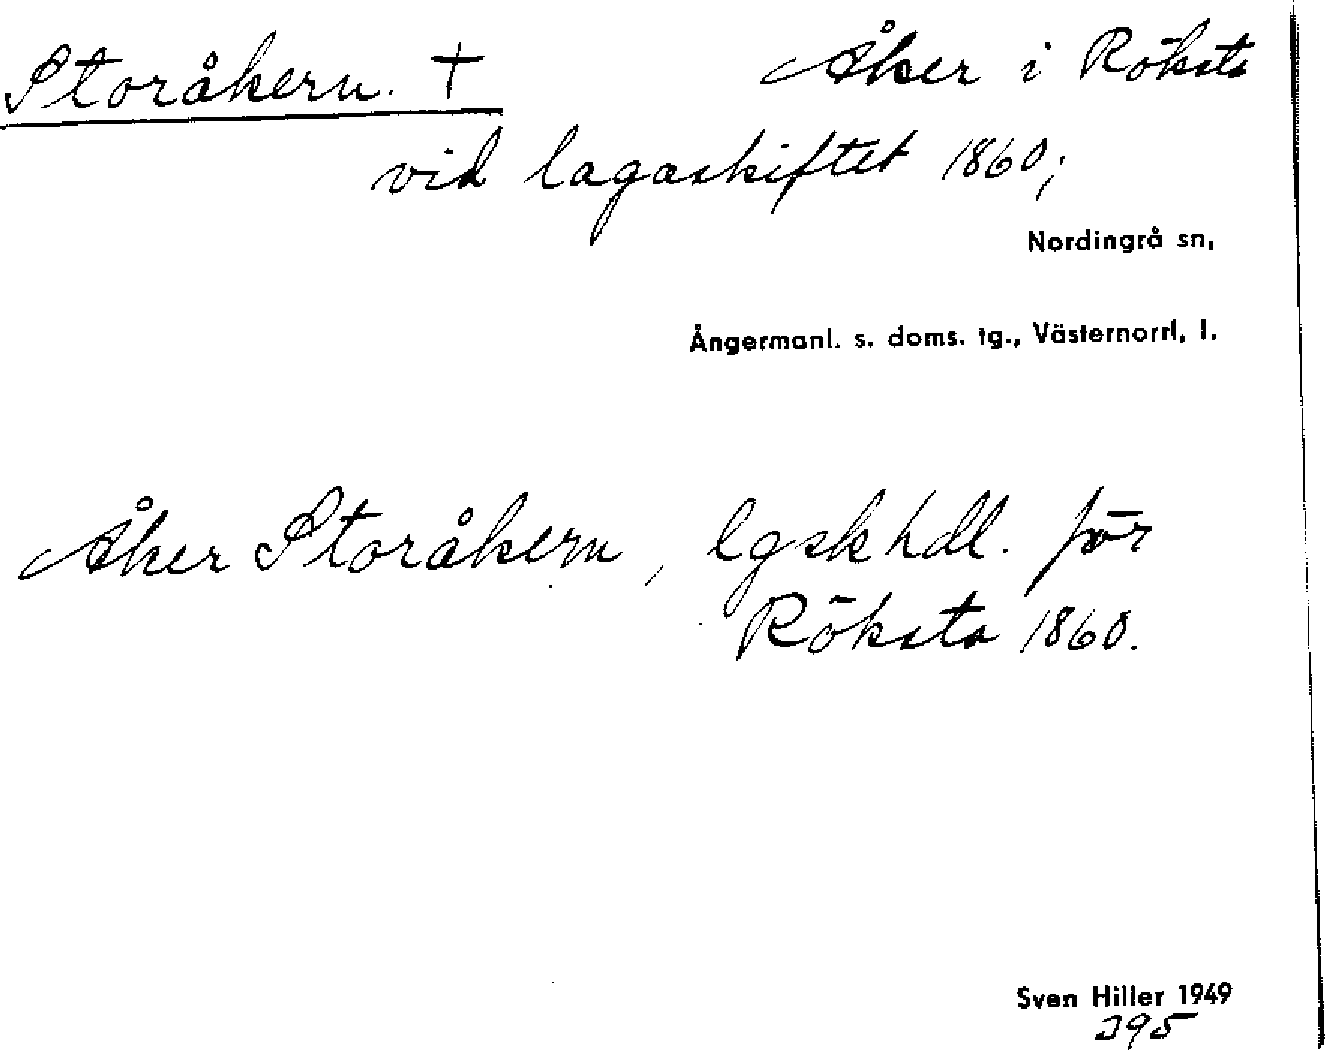 Storåkern. † Åker i Röksta
vid lagaskiftet 1860;
Nordingrå sn,
Ångermanl. s. doms. tg., Västernorrl. l.
Åker Storåkern, lgsk hdl. för
Röksta 1860.
Sven Hiller 1949
395